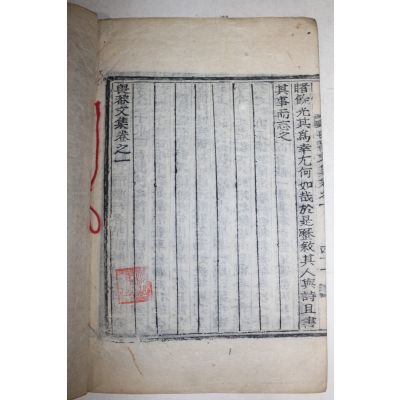 睹餘光其爲幸尤何如哉於是歷敘其人與詩且書
其事而志之
文集卷之一